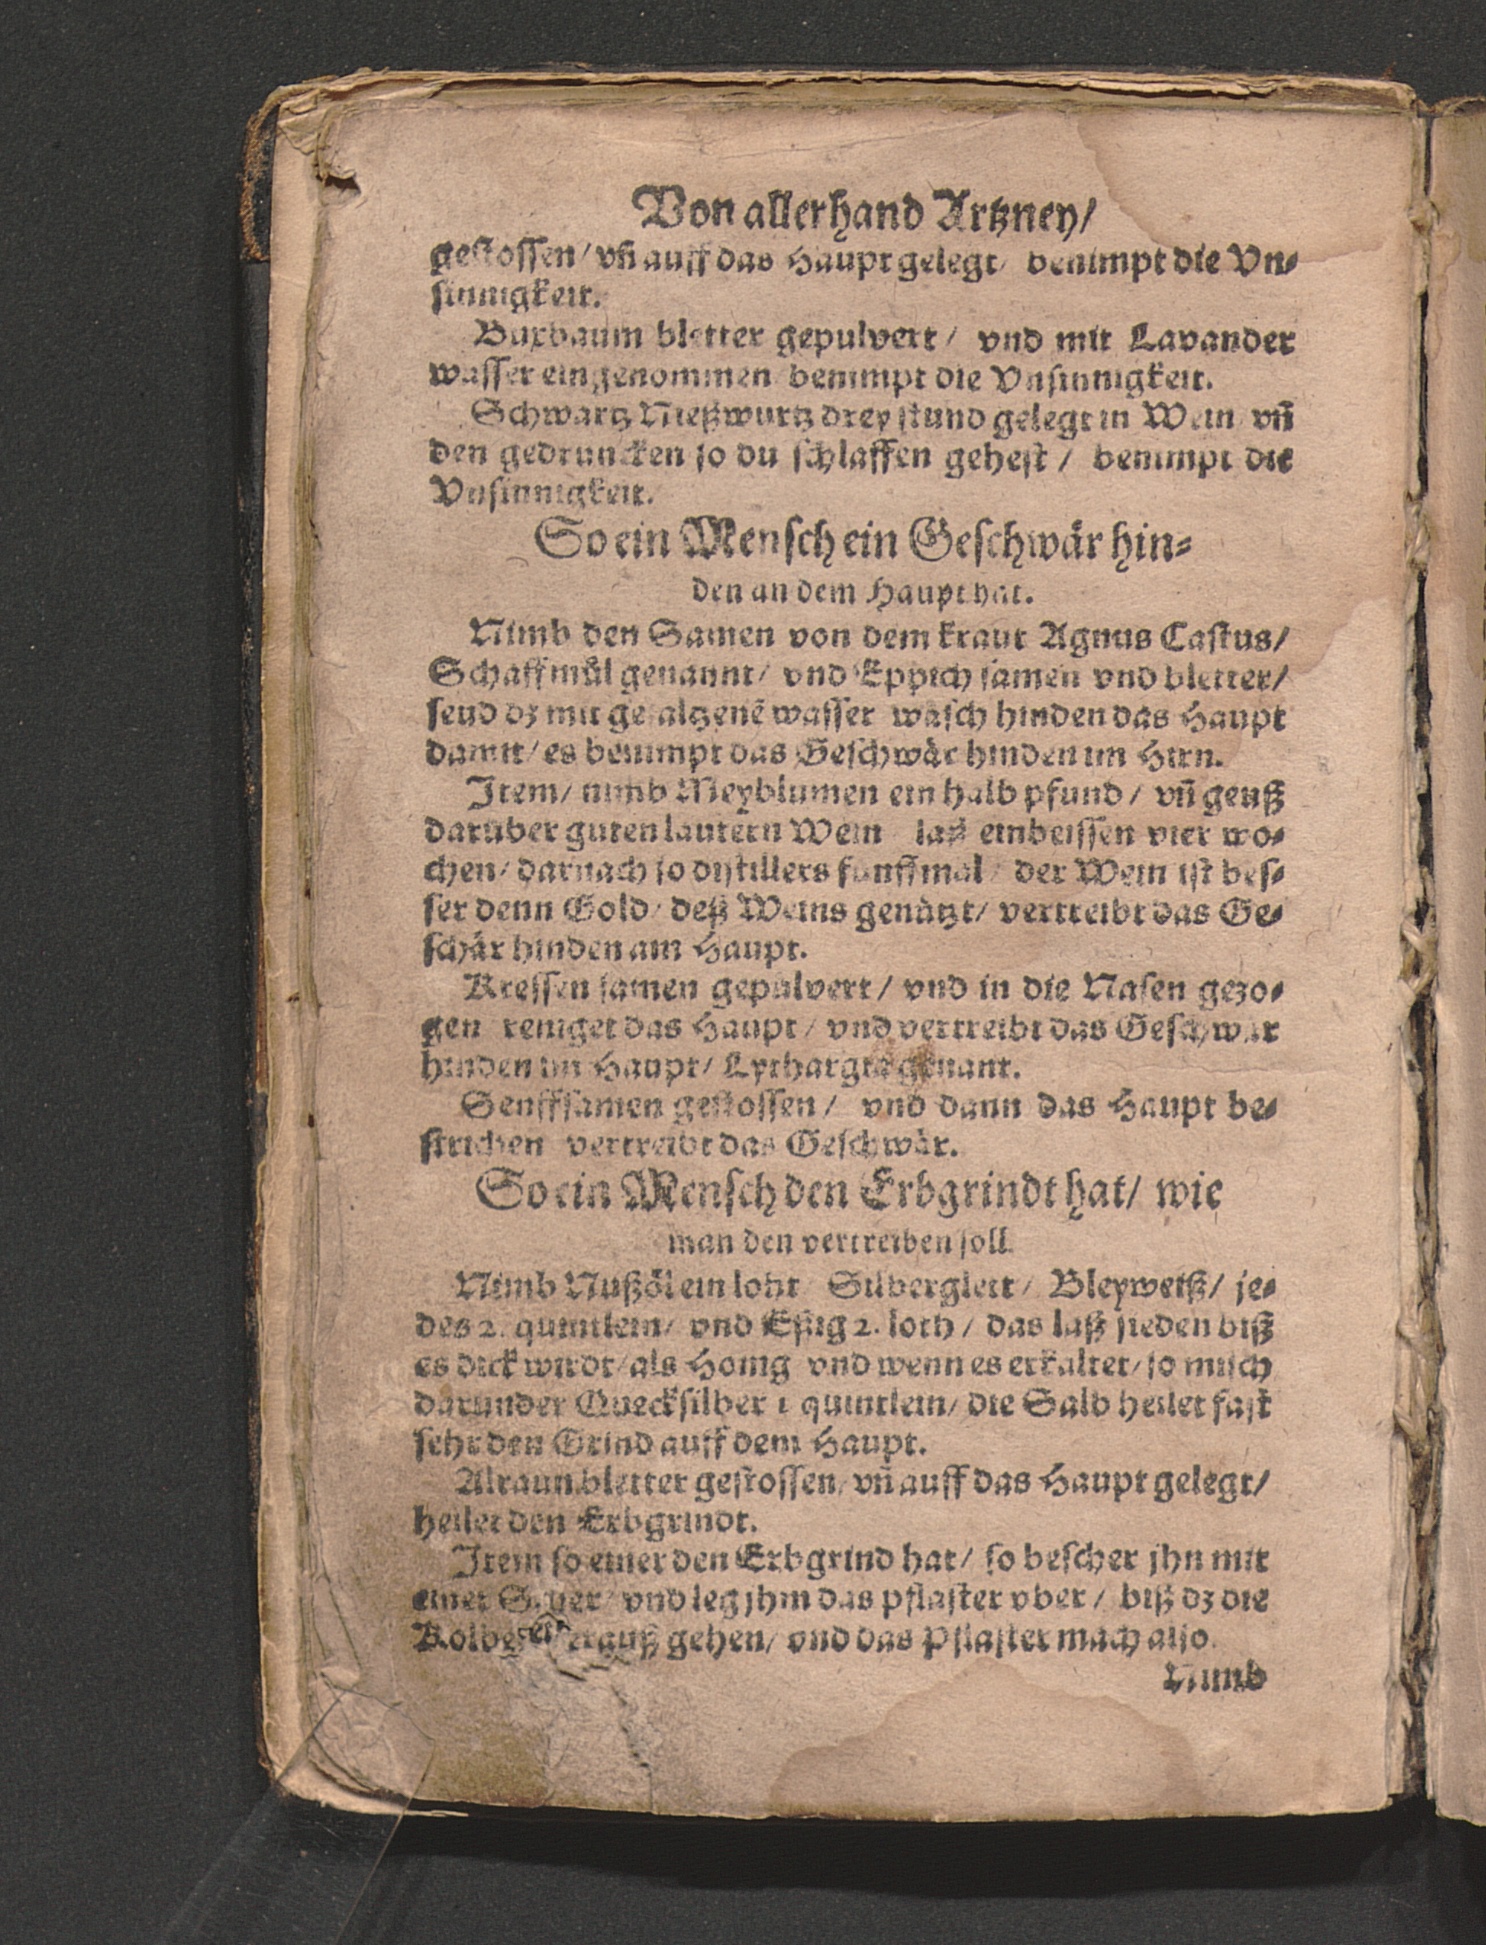 Von allerhand Artzney/
gestossen/ vñ auff das Haupt gelegt/ benimpt die Vn-
sinnigkeit.
Buxbaum bletter gepulvert/ vnd mit Lavander
wasser eingenommen/ benimpt die Vnsinnigkeit.
Schwartz Nießwurtz drey stund gelegt in Wein/ vñ
den gedruncken so du schlaffen gehest/ benimpt die
Vnsinnigkeit.
So ein Mensch ein Geschwär hin-
den an dem Haupt hat.
Nimb den Samen von dem kraut Agnus Castus/
Schaffmůl genannt/ vnd Eppich samen vnd bletter/
seud dz mit gesaltzenẽ wasser wasch hinden das Haupt
damit/ es benimpt das Geschwär hinden im Hirn.
Item/ nimb Meyblumen ein halb pfund/ vñ geuß
darüber guten lautern Wein laß einbeissen vier wo-
chen/ darnach so distillers fünffmal/ der Wein ist bes-
ser denn Gold/ deß Weins genützt/ vertreibt das Ge-
schär hinden am Haupt.
Kressen samen gepulvert/ vnd in die Nasen gezo-
gen reniget das Haupt/ vnd vertreibt das Geschwär
hinden im Haupt/ Lythargia genant.
Senffsamen gestossen/ vnd dann das Haupt be-
strichen vertreibt das Geschwär.
So ein Mensch den Erbgrindt hat/ wie
man den vertreiben soll.
Nimb Nußöl ein loht/ Silberglett/ Bleyweiß/ je-
des 2. quintlein/ vnd Essig 2. loth/ das laß sieden biß
es dick wirdt/ als Honig vnd wenn es erkaltet/ so misch
darunder Quecksilber 1 quintlein/ die Salb heilet fast
sehr den Grind auff dem Haupt.
Alraun bletter gestossen/ vñ auff das Haupt gelegt/
heilet den Erbgrindt.
Item so einer den Erbgrind hat/ so bescher jhn mit
einer vnd leg jhm das pflaster vber/ biß dz die
gehen/ vnd das Pflaster mach also.
Nimb